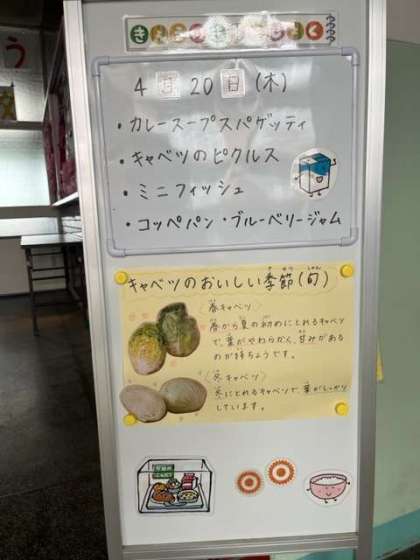 きょうのきゅうしょく
4月 20日 (木)
・カレースープスパゲッティ
・キャベツのピクルス
・ミニフィッシュ
・コッペパン・ブルーベリージャム
キャベツのおいしい季節(旬)
〈春キャベツ〉
春から夏の初めにとれるキャベツ
で、葉がやわらかく、甘みがある
のが特ちょうです。
〈冬キャベツ〉
冬にとれるキャベツで、葉がしっかり
しています。